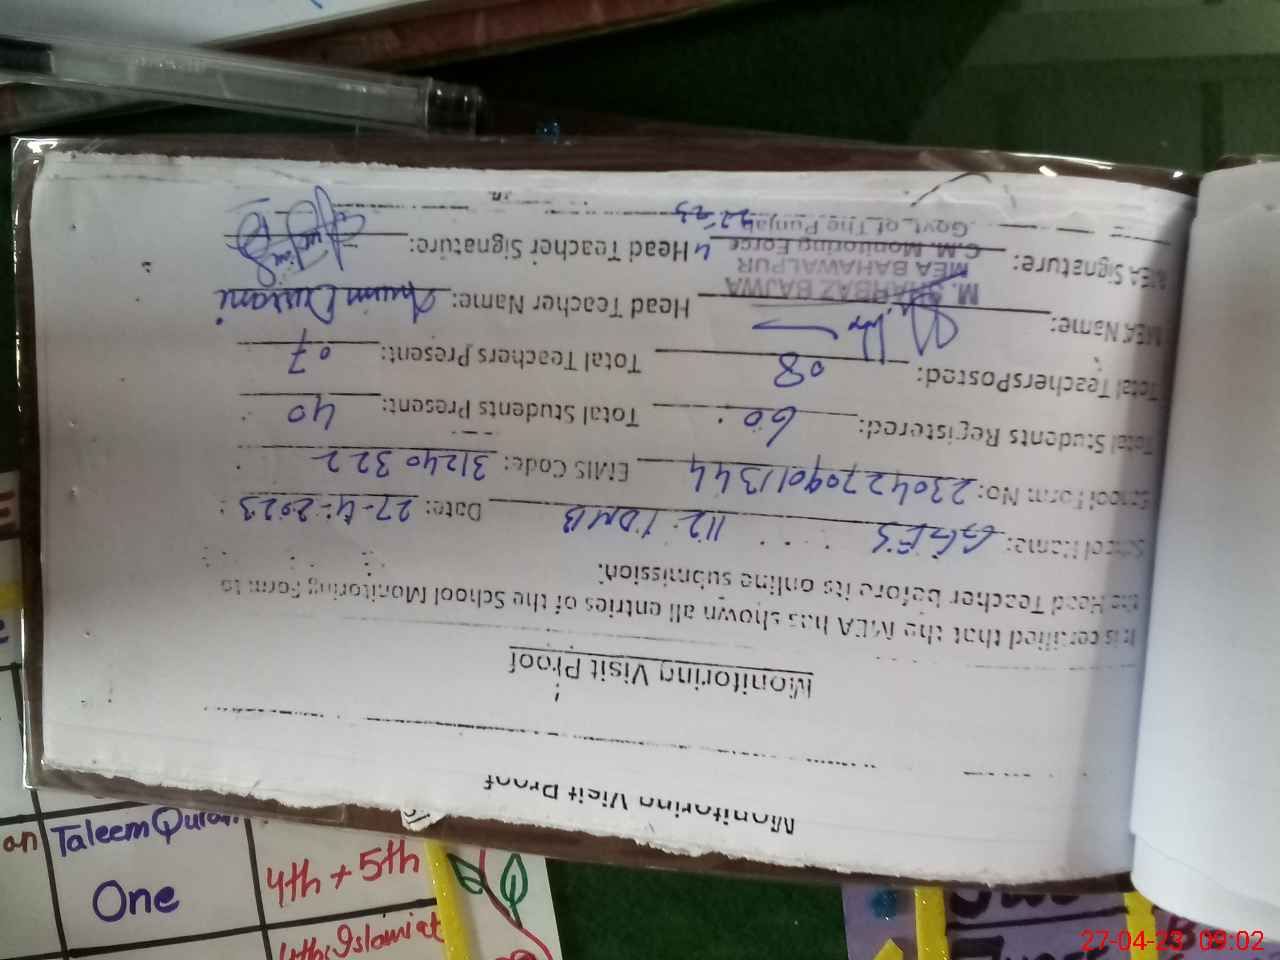 Monitoring Visit Proof
Monitoring Visit Proof
It is certified that the MEA has shown all entries of the School Monitoring Form to
the Head Teacher before its online submission.
School Name: GGES 112-1DNB Date: 27-4-2023
School Form No: 2304270901344 EMIS Code: 31240322
Total Students Registered: 60 Total Students Present: 40
Total Teachers Posted: 08 Total Teachers Present: 07
MEA Name: Head Teacher Name: Anum Durrani
M. SHAHBAZ BAJWA
MEA BAHAWALPUR
C.M. Monitoring Force
Govt. of The Punjab
MEA Signature: Head Teacher Signature:
Taleem Quran
One
4th + 5th
4th Islamiat
27-04-23 09:02